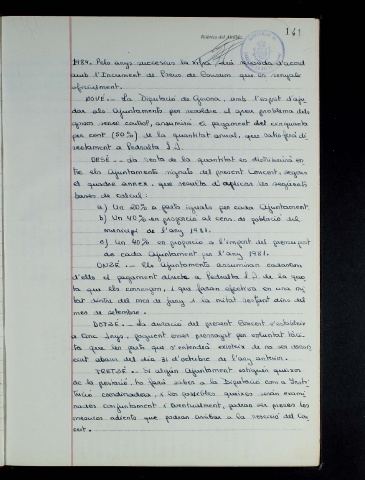 Rúbrica del Alcalde
141
1984. Pels anys successius la xifra serà revisada d'acord
amb l'Increment de Preus de Consum que es senyali
oficialment.
NOVÈ.- La Diputació de Girona, amb l'esprit d'aju-
dar als Ajuntaments per resoldre el greu problema dels
gossos sense control, assumirà el pagament del cinquanta
per cent (50%) de la quantitat anual, que satisferà di-
rectament a Pedralta S.A.
DESÈ.- La resta de la quantitat es distribuirà en
tre els Ajuntaments signats del present Concert, segons
el quadre annex, que resulta d'aplicar les següents
bases de càlcul:
a) Un 20% a parts iguals per cada Ajuntament.
b) Un 40% en proporció al cens de població del
municipi de l'any 1981.
c) Un 40% en proporció a l'import del pressupost
de cada Ajuntament per l'any 1981.
ONZÈ.- Els Ajuntaments assumiran cadascun
d'ells el pagament directe a Pedralta S.A. de la quo
ta que els correspon, i que faran efectiva en una mi
tat dintre del mes de juny i la mitat restant dins del
mes de setembre.
DOTZÈ.- La duració del present Concert s'estableix
a cinc anys, poguent esser prorrogat per voluntat tàci
ta que les parts que s'entendrà existeix de no ser denun
ciat abans del dia 31 d'octubre de l'any anterior.
TRETZÈ.- Si algún Ajuntament tingués queixes
de la prestació, ho farà saber a la Diputació com a Insti
tució coordinadora, i les possibles queixes seràn exami
nades conjuntament i eventualment, podran ser preses les
mesures adients que podran arribar a la rescisió del Con
cert.